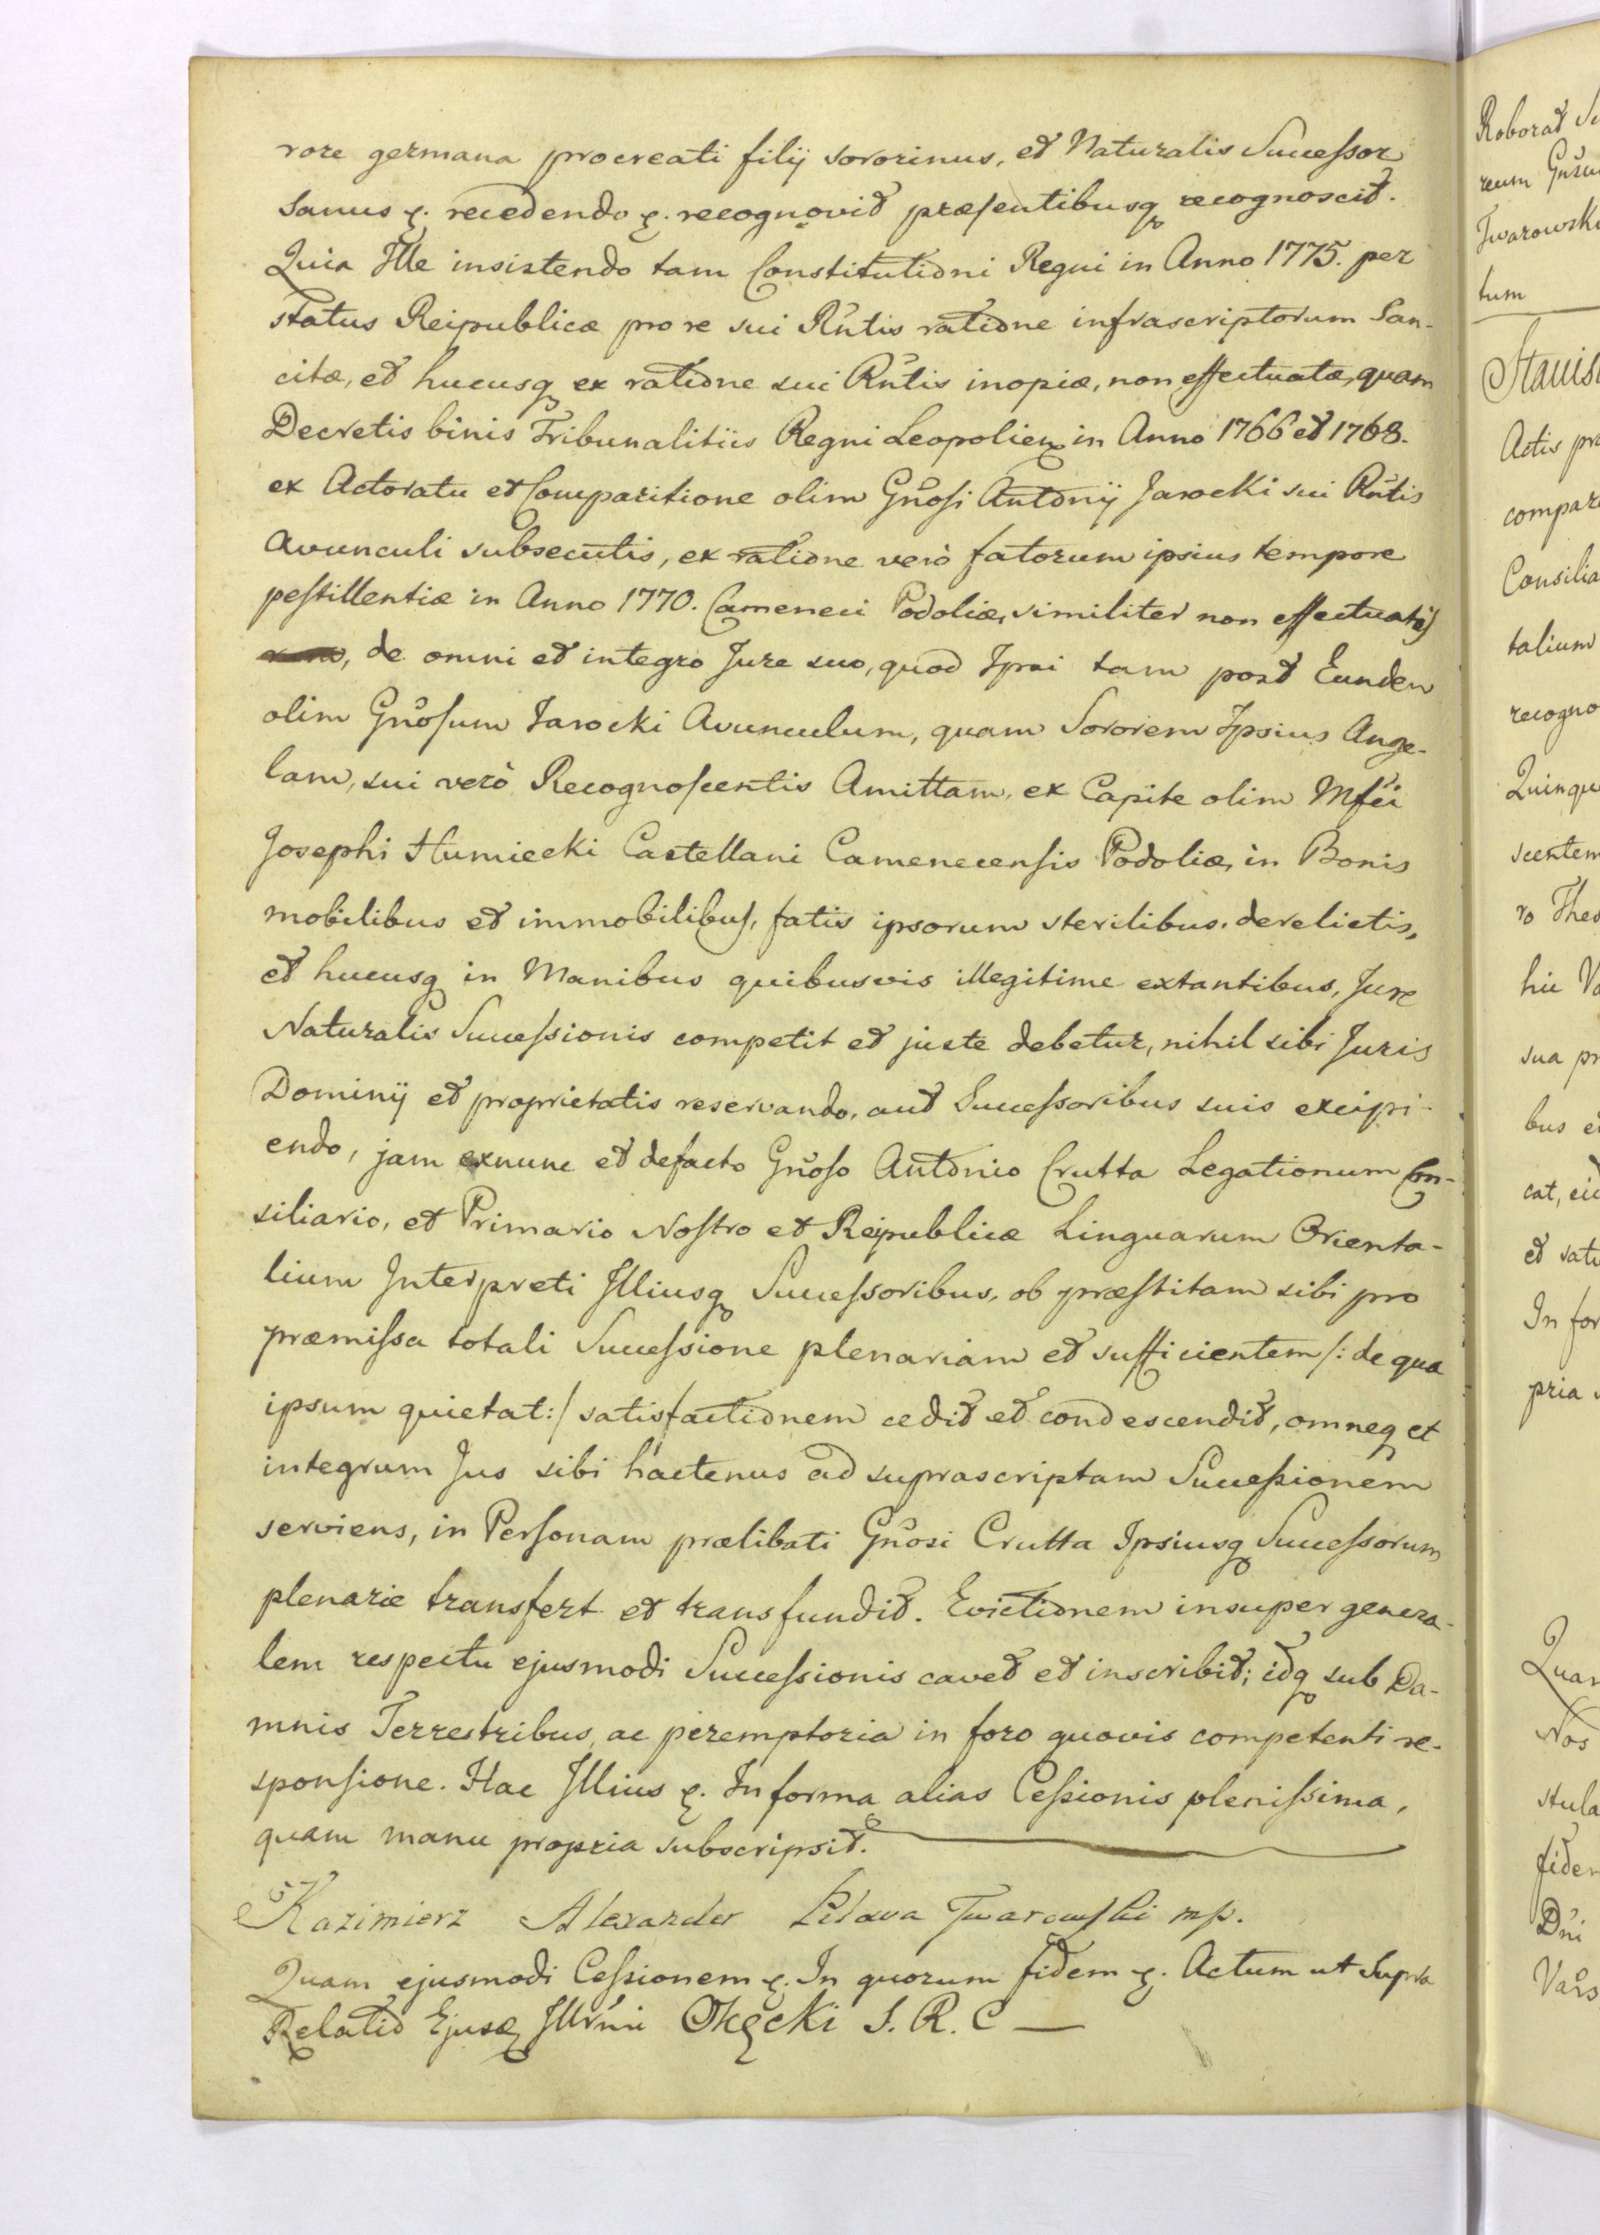 rore germana procreati filij sororinus, et Naturalis Successor
Sanus &. recedendo &. recognovit præsentibusq recognoscit.
Quia Ille insistendo tam Constitutioni Regni in Anno 1775. per
status Reipublicæ pro re sui Rñtis ratione infrascriptorum San-
citæ, et hucusq ex ratione sui Rñtis inopiæ, non effectuatæ, quam
Decretis binis Tribunalitiis Regni Leopolien in Anno 1766 et 1768.
ex Actoratu et Comparitione olim Gñosi Antonij Jarocki sui Rñtis
Avunculi subsecutis, ex ratione verò fatorum ipsius tempore
pestillentiæ in Anno 1770. Cameneci Podoliæ, similiter non effectuatis
de omni et integro Jure suo, quod Ipsi tam post Eundem
olim Gñosum Jarocki Avunculum, quam Sororem Ipsius Ange-
lam, sui verò Recognoscentis Amittam, ex Capite olim Mfci
Josephi Humiecki Castellani Camenecensis Podoliæ, in Bonis
mobilibus et immobilibus, fatis ipsorum sterilibus derelictis,
et hucusq in Manibus quibusvis illegitime extantibus, Jure
Naturalis Successionis competit et juste debetur, nihil sibi Juris
Dominij et proprietatis reservando, aut Successoribus suis excipi-
endo, jam exnunc et defacto Gñoso Antonio Crutta Legationum Con-
siliario, et Primario Nostro et Reipublicæ Linguarum Orienta-
lium Interpreti Illiusq Successoribus, ob præstitam sibi pro
præmissa totali Successione plenariam et sufficientem /: de qua
ipsum quietat :/ satisfactionem cedit et condescendit, omneq et
integrum Jus sibi hactenus ad suprascriptam Successionem
serviens, in Personam prælibati Gñosi Crutta Ipsiusq Successorum
plenarie transfert et transfundit. Evictionem insuper genera-
lem respectu ejusmodi Successionis cavet et inscribit; idq sub Da-
mnis Terrestribus, ac peremptoria in foro quovis competenti re-
sponsione. Hac Illius &. In forma alias Cessionis plenissima,
quam manu propria subscripsit.
Kazimierz Alexander Pilawa Twarowski mp.
Quam ejusmodi Cessionem &. In quorum fidem &. Actum ut Supra
Relatio Ejusq Illrmi Okęcki S. R. C
Roborat
reum
Twarowski
tum
Actis
compar
Consilia
talium
recogno
Quinqu
scentem
ro
hic
sua pr
bus
cat,
et
In for
pria
Quam
Nos
stula
fidem
Dñi
Vars